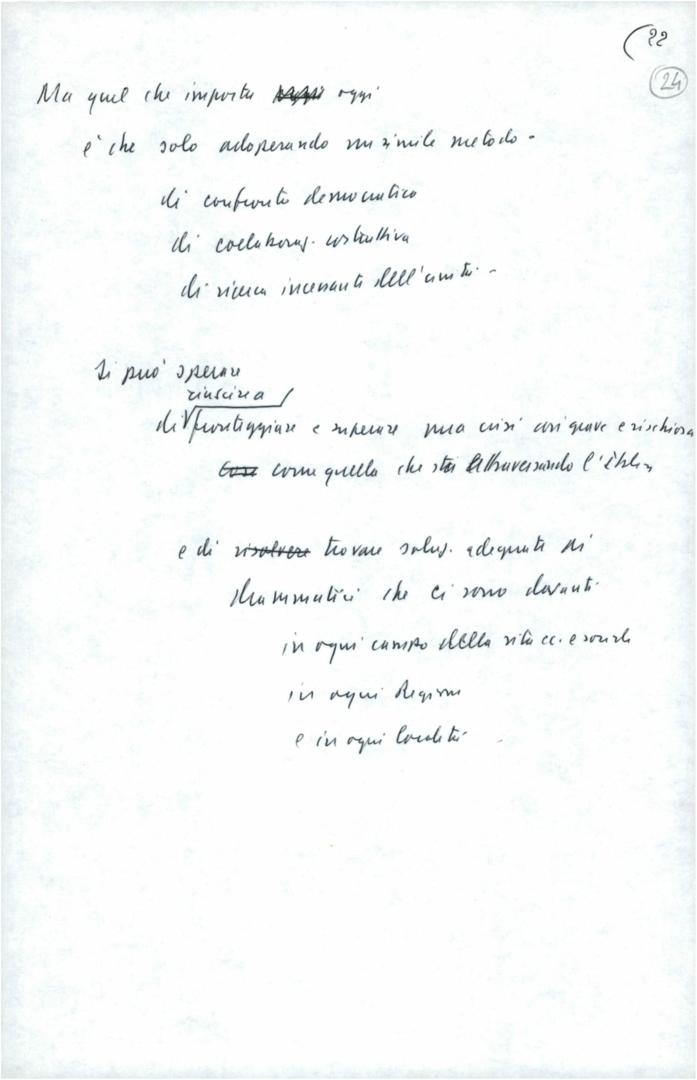 (22
24
Ma quel che importa oggi oggi
è che solo adoperando un simile metodo -
di confronto democratico
di collaboraz. costruttiva
di ricerca incessante dell'unità -
si può sperare
riuscire a
di fronteggiare e superare una crisi così grave e rischiosa
Così come quella che sta attraversando l'Italia
e di risolvere trovare soluz. adeguate ai
drammatici che ci sono davanti
in ogni campo della vita ec. e sociale
in ogni Regione
e in ogni località